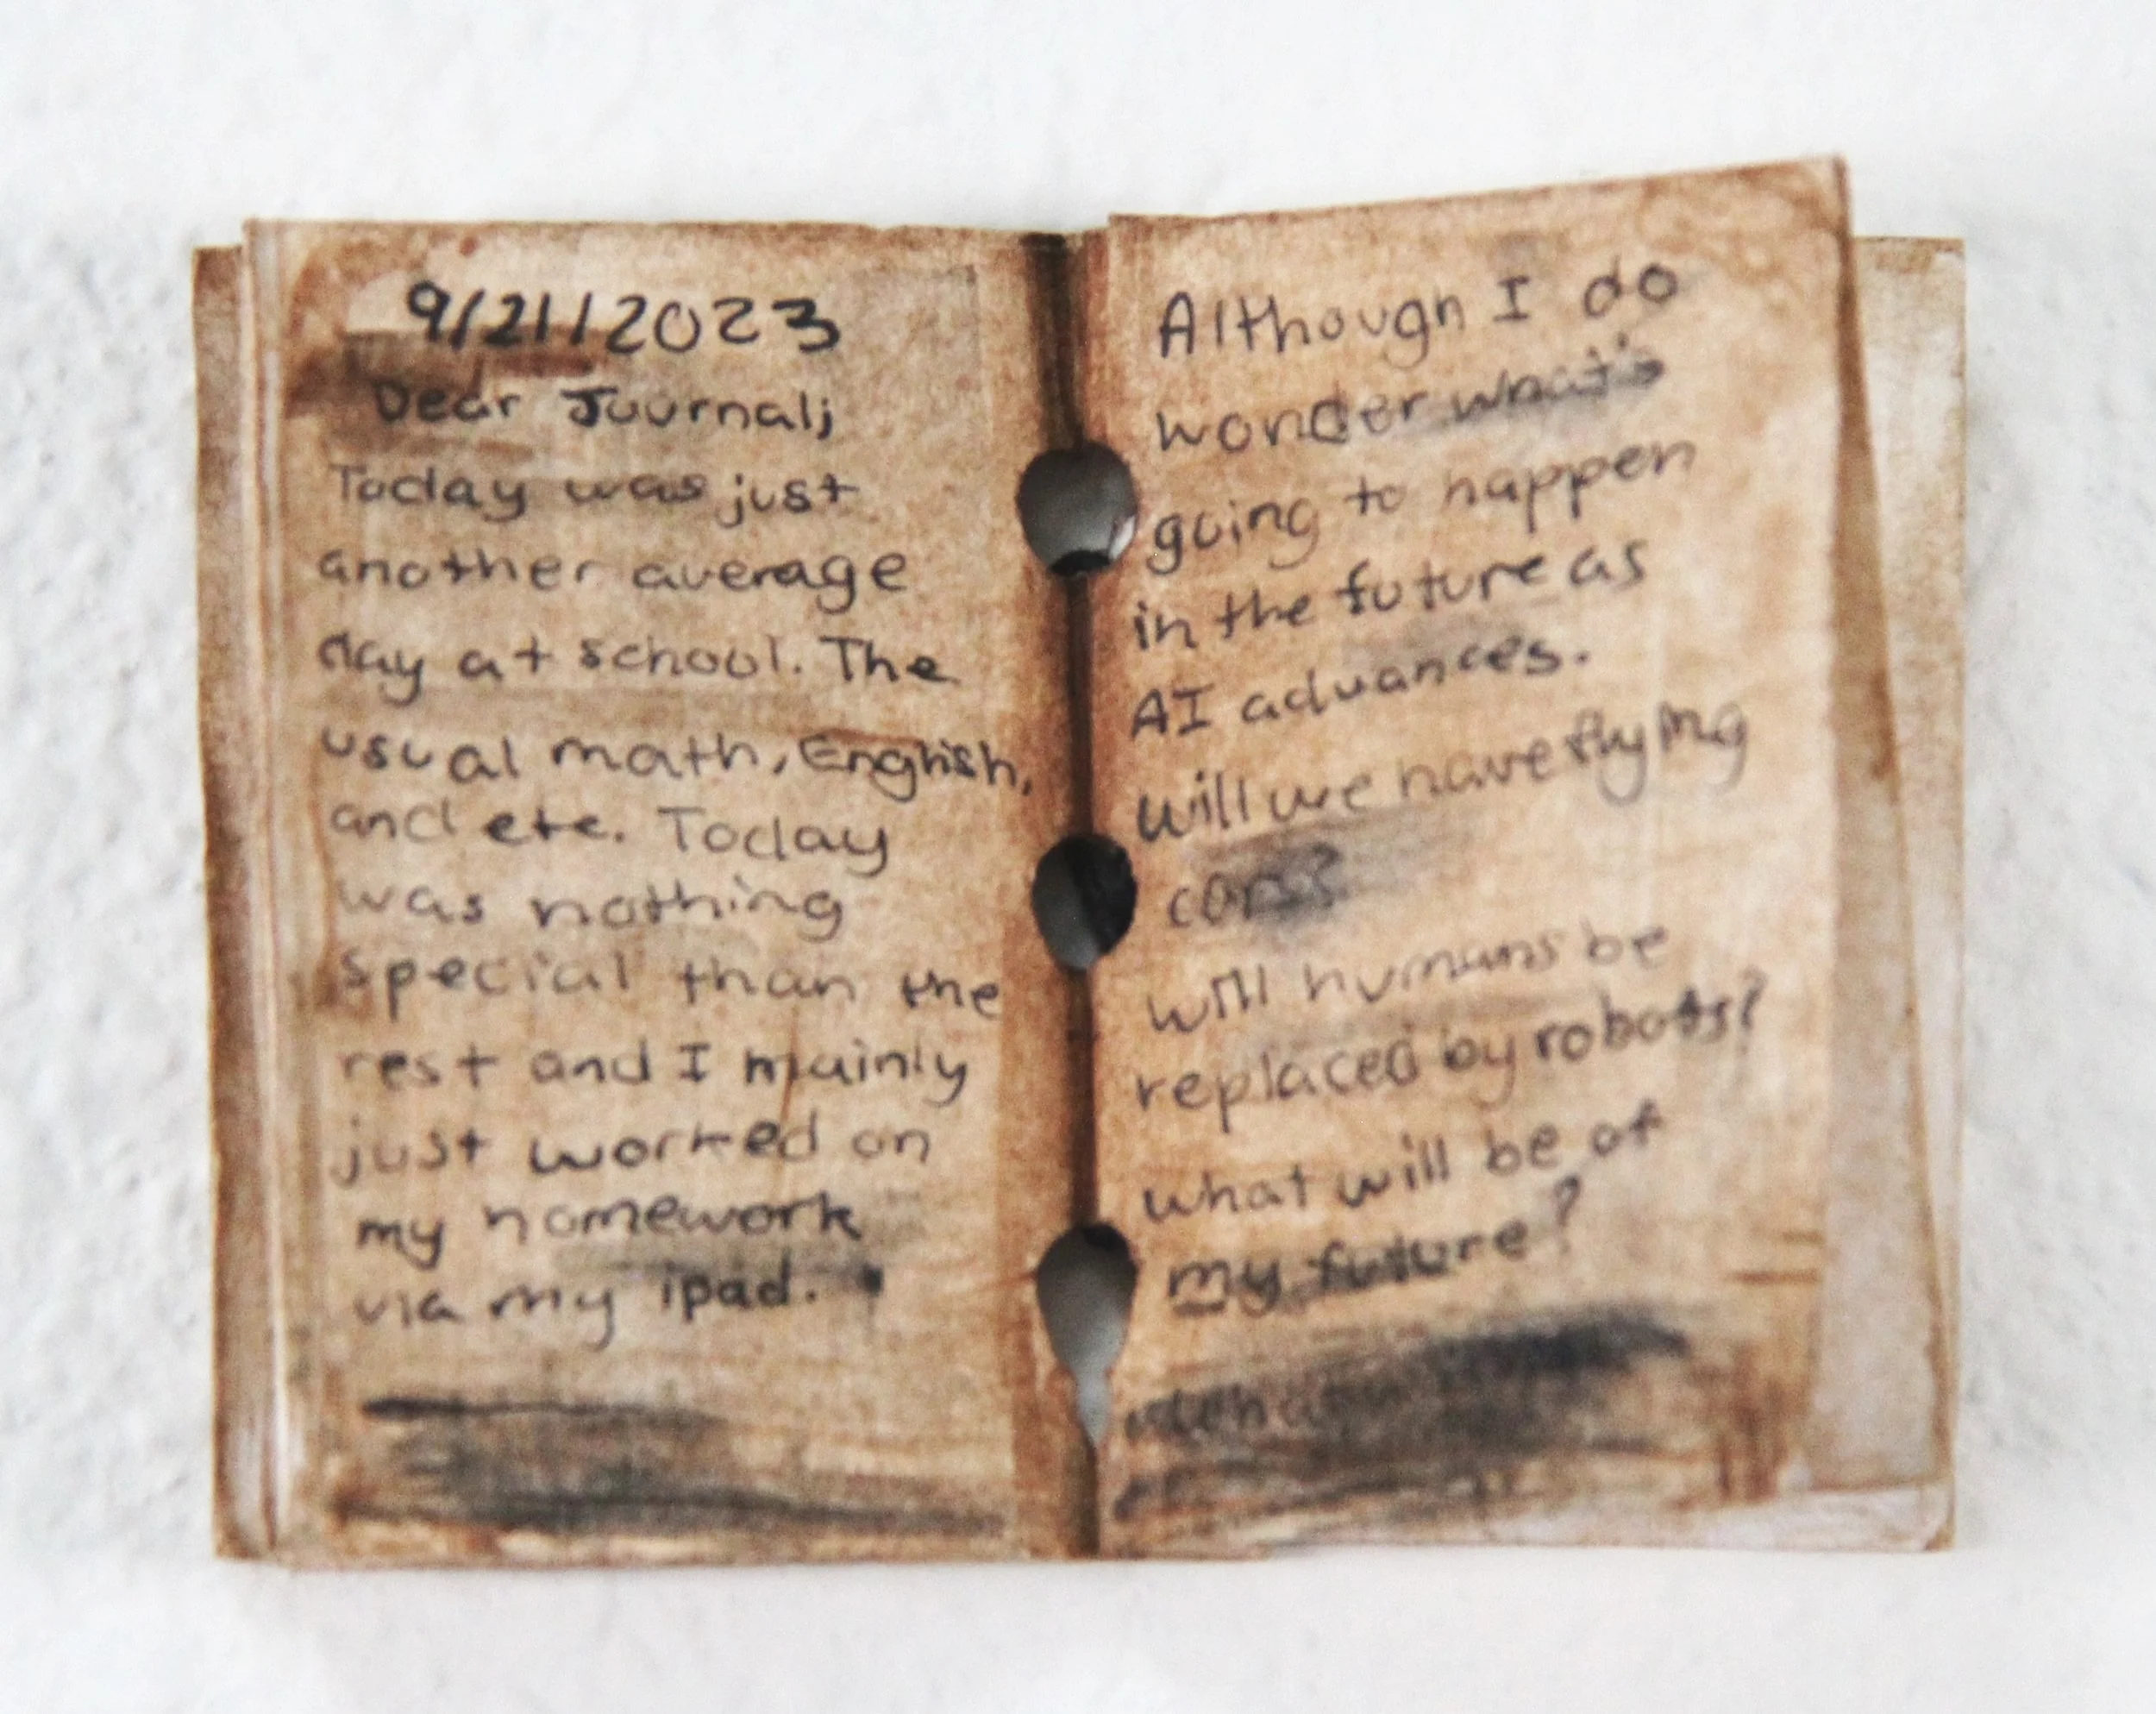 9/21/2023
Dear Journal;
Today was just
another average
day at school. The
usual math, English,
and etc. Today
was nothing
special than the
rest and I mainly
just worked on
my homework
via my ipad.
Although I do
wonder what's
going to happen
in the future as
AI advances.
will we have flying
cars?
will humans be
replaced by robots?
what will be of
my future?